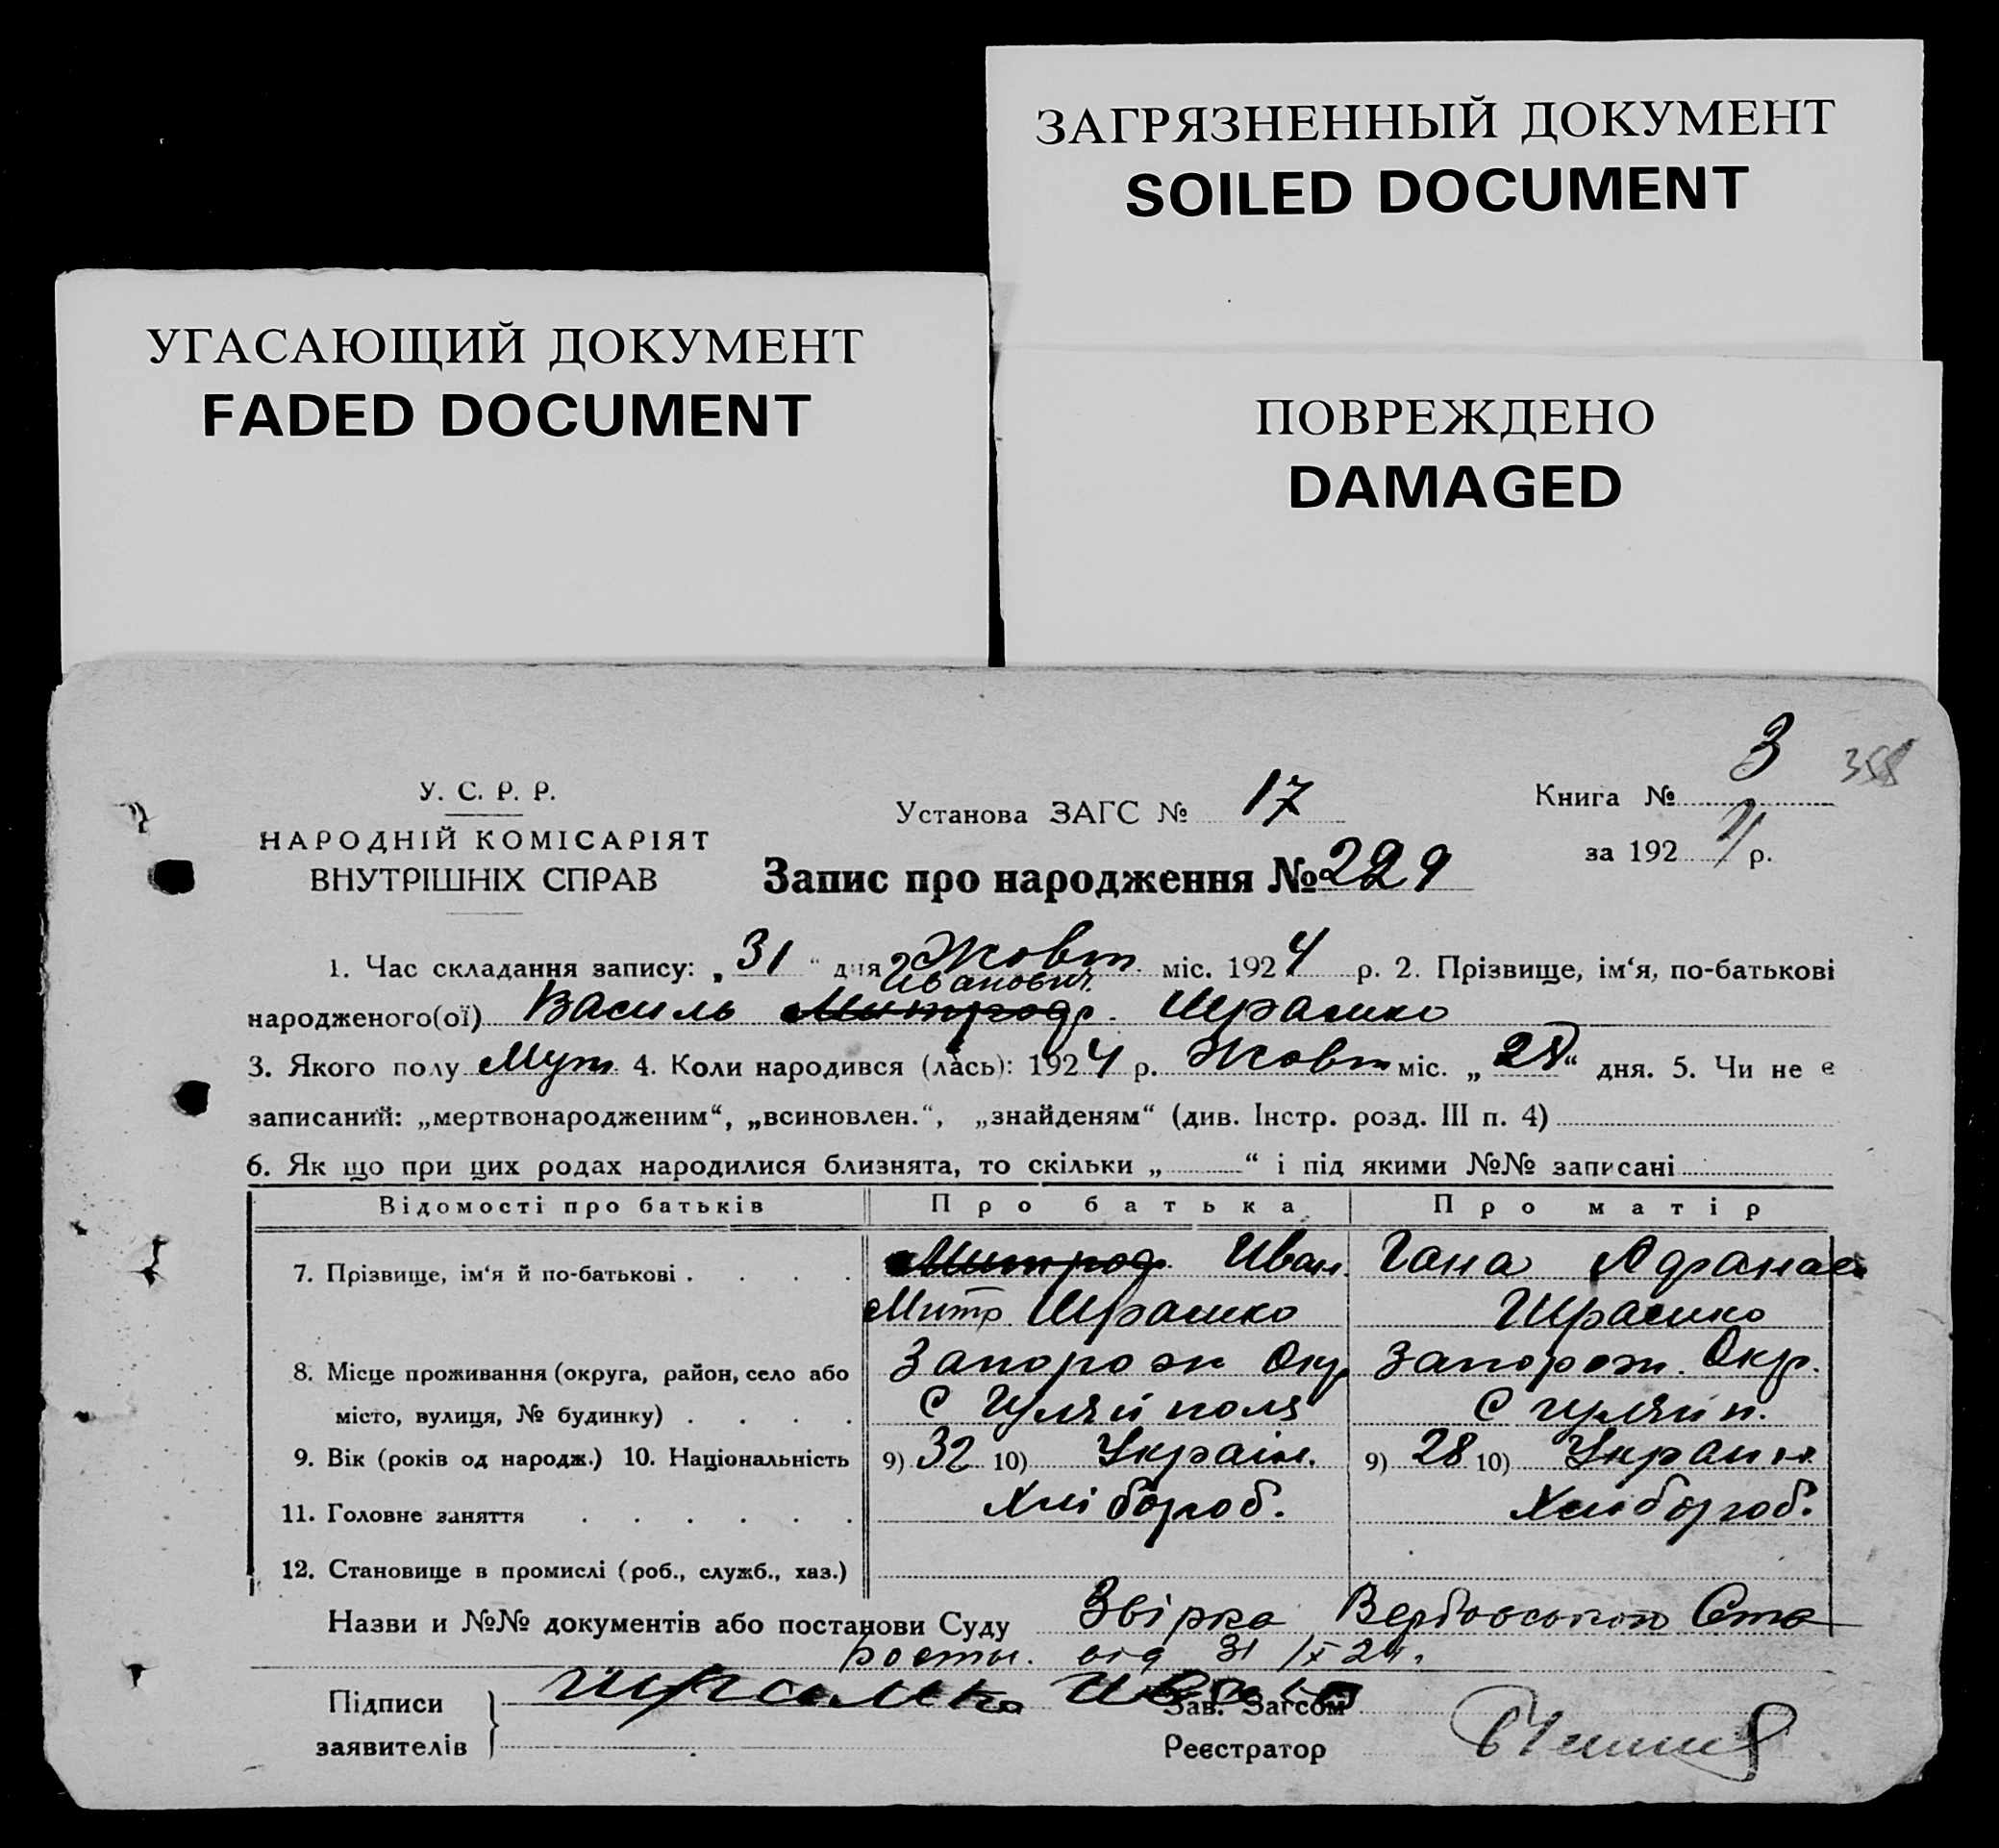 ЗАГРЯЗНЕННЫЙ ДОКУМЕНТ
SOILED DOCUMENT
УГАСАЮЩИЙ ДОКУМЕНТ
FADED DOCUMENT
ПОВРЕЖДЕНО
DAMAGED
У. С. Р. Р.
НАРОДНІЙ КОМІСАРІЯТ
ВНУТРІШНІХ СПРАВ
Установа ЗАГС № 17
Книга № 3
за 192 р.
Запис про народження № 229
1. Час складання запису: „31“ дня Жовт. міс. 1924 р. 2. Прізвище, ім‘я, по-батькові
Иванович.
народженого(ої) Василь
3. Якого полу 4. Коли народився (лась): 1924 р. Жовт міс. „28“ дня. 5. Чи не є
записаний: „мертвонародженим“, „всиновлен.“, „знайденям“ (див. Інстр. розд. III п. 4)
6. Як що при цих родах народилися близнята, то скільки „ “ і під якими №№ записані
Відомості про батьків Про батька Про матір
7. Прізвище, ім‘я й по-батькові . . . . Иван. Гана
Митр
8. Місце проживання (округа, район, село або Запорож Окр Запорож. Окр.
місто, вулиця, № будинку) . . . . С Гуляй поля С Гуляй п.
9. Вік (років од народж.) 10. Національність 9) 32 10) Україн. 9) 28 10) Украин
11. Головне заняття . . . . . . Хлібороб. Хлібороб.
12. Становище в промислі (роб., служб., хаз.)
Назви и №№ документів або постанови Суду Звірка
від 31
Підписи
заявителів
Зав. Загсом
Реєстратор